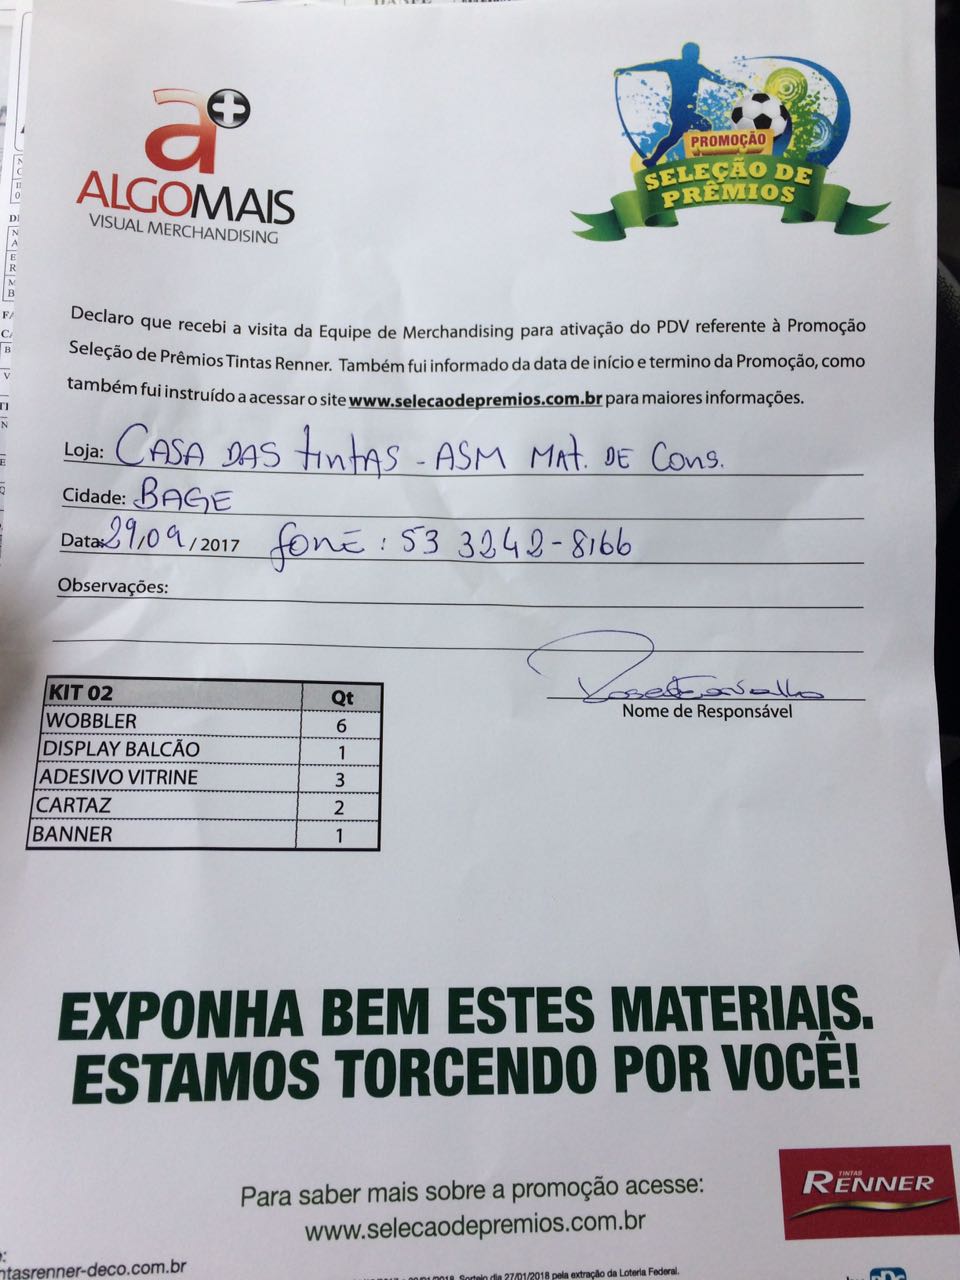 a+
ALGOMAIS
VISUAL MERCHANDISING
PROMOÇÃO
SELEÇÃO DE
PRÊMIOS
Declaro que recebi a visita da Equipe de Merchandising para ativação do PDV referente à Promoção
Seleção de Prêmios Tintas Renner. Também fui informado da data de início e termino da Promoção, como
também fui instruído a acessar o site www.selecaodepremios.com.br para maiores informações.
Loja: CASA DAS tintAS - ASM MAt. DE Cons.
Cidade: BAGE
Data: 29/09 / 2017 fonE : 53 3242-8166
Observações:
Nome de Responsável
KIT 02 Qt
WOBBLER 6
DISPLAY BALCÃO 1
ADESIVO VITRINE 3
CARTAZ 2
BANNER 1
EXPONHA BEM ESTES MATERIAIS.
ESTAMOS TORCENDO POR VOCÊ!
TINTAS
RENNER
Para saber mais sobre a promoção acesse:
www.selecaodepremios.com.br
ntasrenner-deco.com.br
/2018. Sorteio dia 27/01/2018 pela extração da Loteria Federal.